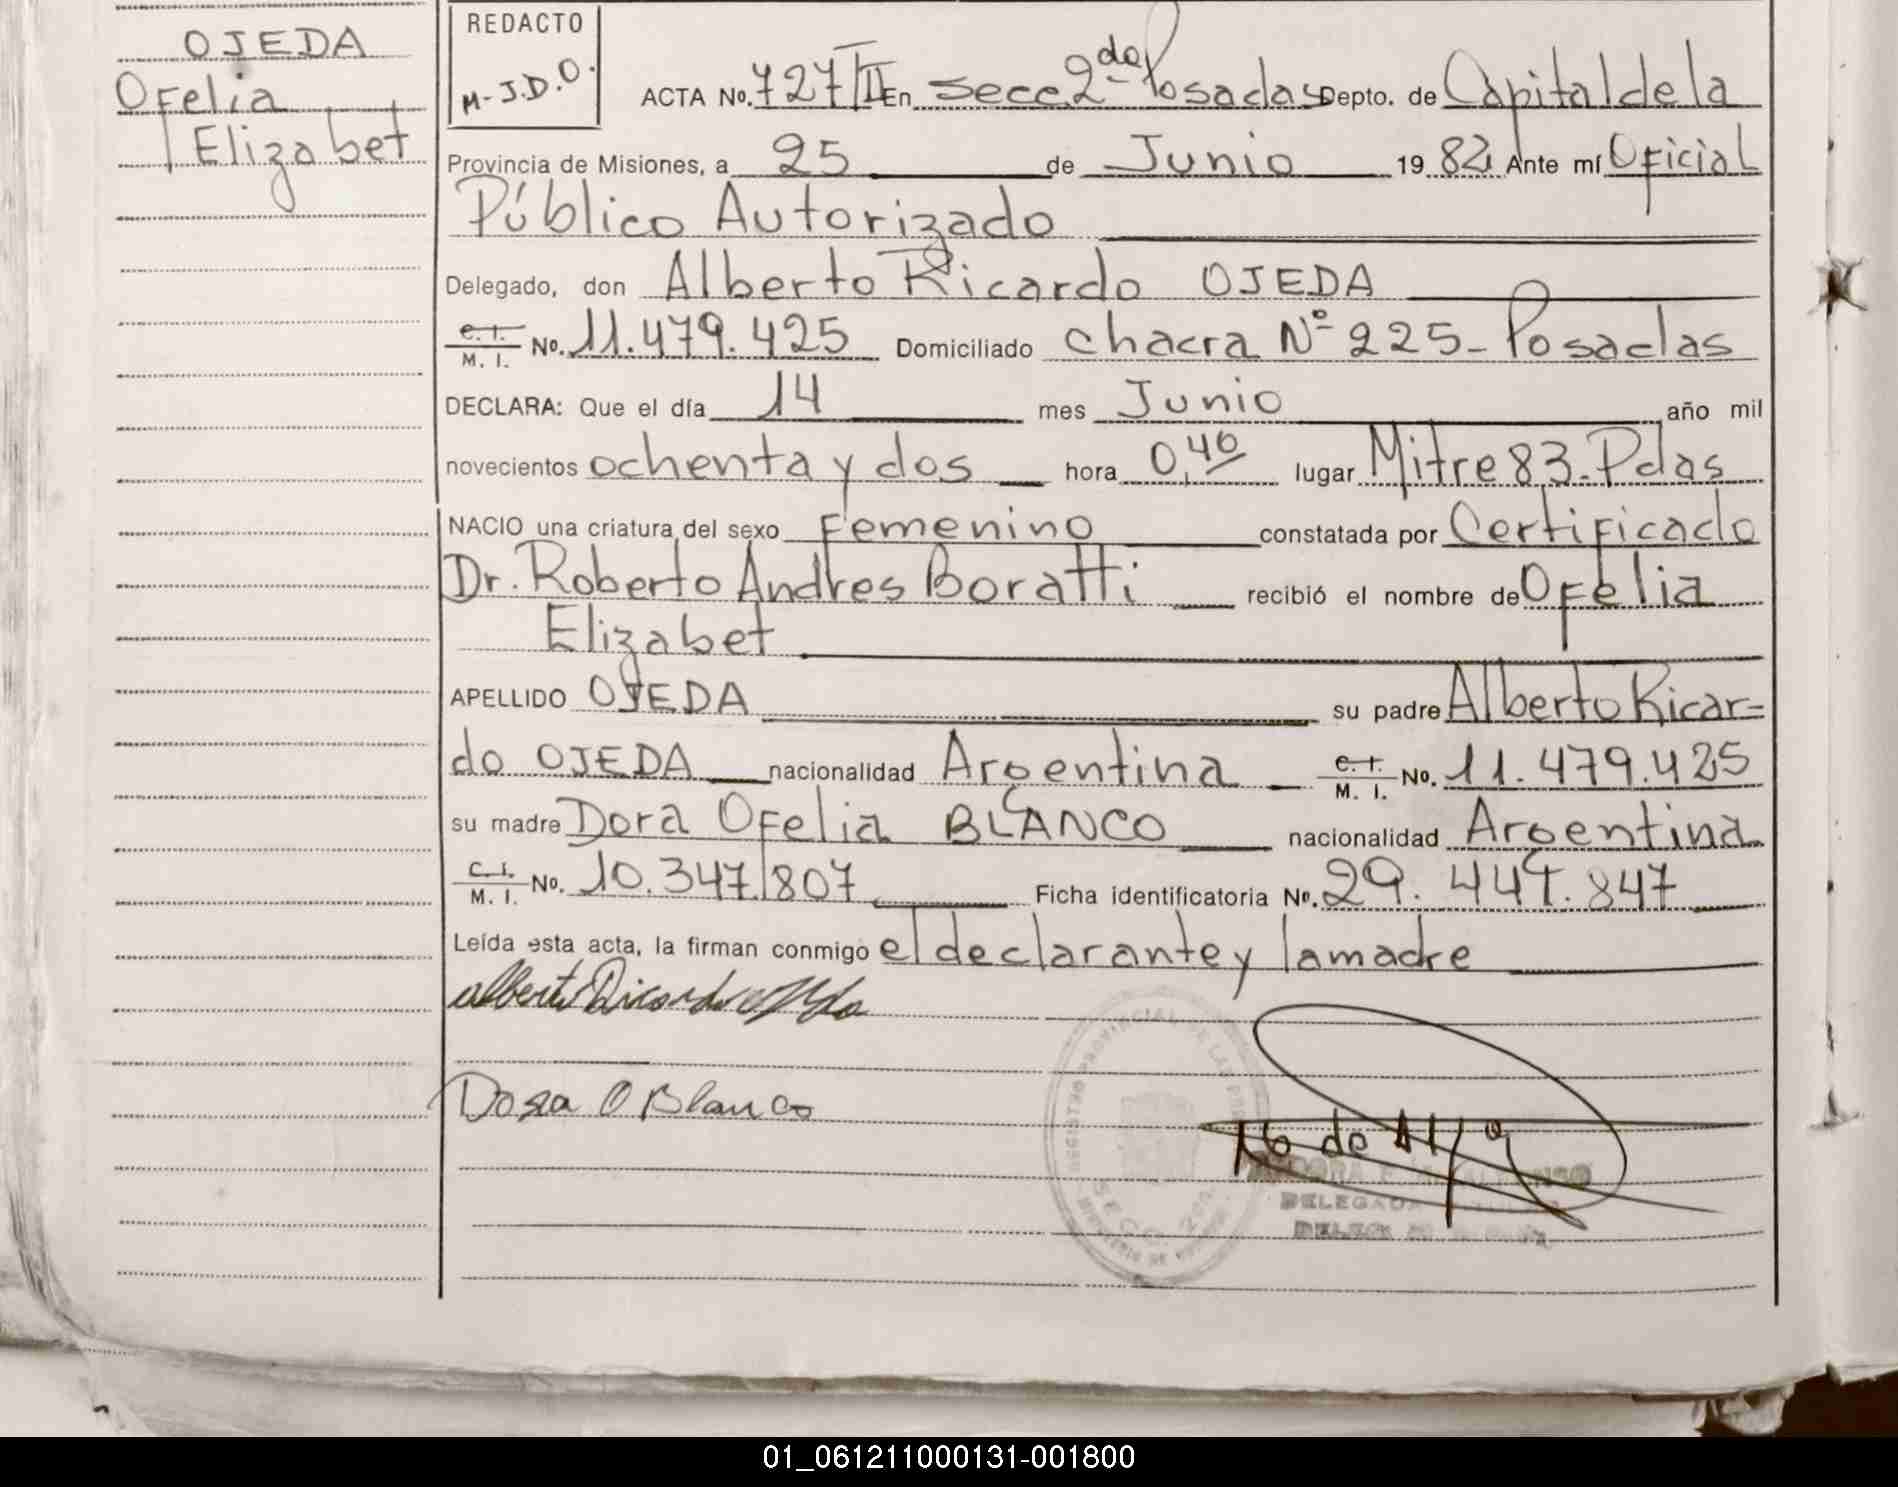 OJEDA
Ofelia
Elizabet
REDACTO
M-J.D.O.
ACTA No. 727/II En secc. 2da Posadas Depto. de Capital de la
Provincia de Misiones, a 25 de Junio 19 82 Ante mí Oficial
Público Autorizado
Delegado, don Alberto Ricardo OJEDA
C. I. M. I. No. 11.479.425 Domiciliado chacra Nº 225- Posadas
DECLARA: Que el día 14 mes Junio año mil
novecientos ochenta y dos hora 0,40 lugar Mitre 83- Pdas
NACIO una criatura del sexo Femenino constatada por Certificado
Dr. Roberto Andres Boratti recibió el nombre de Ofelia
Elizabet
APELLIDO OJEDA su padre Alberto Ricar=
do OJEDA nacionalidad Argentina C. I. M. I. No. 11.479.425
su madre Dora Ofelia BLANCO nacionalidad Argentina
C. I. M. I. No. 10.347.807 Ficha identificatoria No. 29.447.847
Leída esta acta, la firman conmigo el declarante y la madre
Alberto Ricardo Ojeda
Dora O Blanco
16 de
DELEGADA
01_061211000131-001800